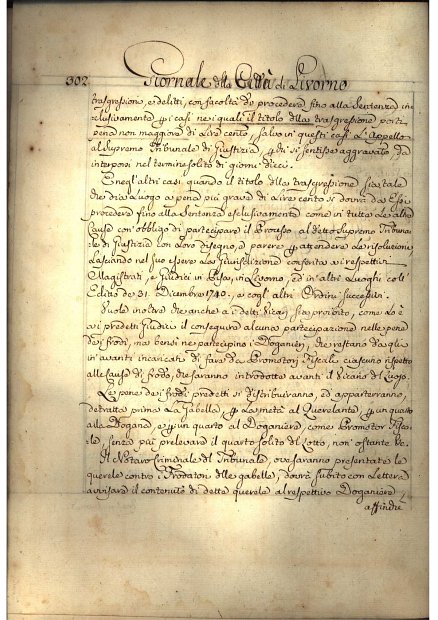 302 Giornale della Città di Livorno
trasgressione, e delitti, con facoltà di procedere fino alla Sentenza in
clusivamente ꝑ i casi nei quali il titolo della trasgressione porti
pena non maggiore di Lire cento, salvo in questi casi L'Appello
al Supremo Tribunale di Giustizia, ꝑ chi si sentisse aggravato da
interporsi nel termine solito di giorni dieci.
E negl'altri casi quando il titolo della trasgressione sia tale
che dia Luogo a pena più grave di Lire cento si dovrà da Essi
procedere fino alla Sentenza esclusivamente come in tutte Le altre
Cause con obbligo di partecipare il Processo al detto Supremo Tribuna
le di Giustizia con Loro disegno, o parere ꝑ attendere La risoluzione
Lasciando nel suo essere La Giurisdizione conferita ai respettivi
Magistrati, e Giudici in Pisa, in Livorno, ed in altri Luoghi coll'
Editto de 31. Dicembre 1740. e cogl'altri Ordini successivi.
Vuole inoltre che anche a i detti Vicari sia proibito, come Lo è
a i predetti Giudici il conseguire alcuna partecipazione nelle pene
dei frodi, ma bensì ne partecipino i Doganieri, che restano da qui
in avanti incaricati di fare da Promotori Fiscali ciascuno rispetto
alle Cause di frodo, che saranno introdotte avanti il Vicario del Luogo.
Le pene dei frodi predetti si distribuiranno, ed apparterranno,
detratta prima La Gabella, ꝑ La metà al Querelante, ꝑ un quarto
alla Dogana, e ꝑ un quarto al Doganiere, come Promotor Fisca
le, senza più prelevare il quarto solito del Lotto, non'ostante &c.
Il Notaro Criminale del Tribunale, ove saranno presentate le
querele contro i Frodatori delle gabelle, dovrà subito con Lettera
avvisare il contenuto di dette querele al respettivo Doganiere
affinchè